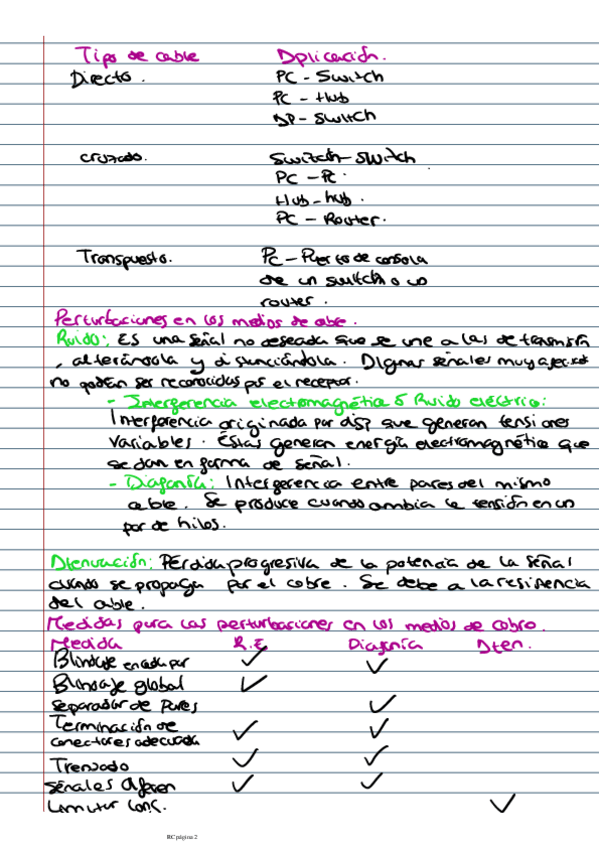 Tipo de cable Aplicación.
Directo. PC - Switch
PC - Hub
AP - Switch
Cruzado. Switch - Switch
PC - PC.
Hub - hub.
PC - Router.
Transpuesto. PC - Puerto de consola
de un switch o un
router.
Perturbaciones en los medios de cobre.
Ruido: Es una señal no deseada que se une a las de transmisión
, alterándola y distorsionándola. Algunas señales muy afectadas
no podrán ser reconocidas por el receptor.
- Interferencia electromagnética ó Ruido eléctrico:
Interferencia originada por disp que generan tensiones
variables. Éstas generan energía electromagnética que
se dan en forma de señal.
- Diafonía: Interferencia entre pares del mismo
cable. Se produce cuando cambia la tensión en un
par de hilos.
Atenuación: Pérdida progresiva de la potencia de la señal
cuando se propaga por el cobre. Se debe a la resistencia
del cable.
Medidas para las perturbaciones en los medios de cobre.
Medida R.E Diafonía Aten.
Blindaje en cada par ✓ ✓
Blindaje global ✓
Separador de Pares ✓
Terminación de
conectores adecuada ✓ ✓
Trenzado ✓ ✓
Señales diferen ✓ ✓
Limitar long. ✓
RC página 2